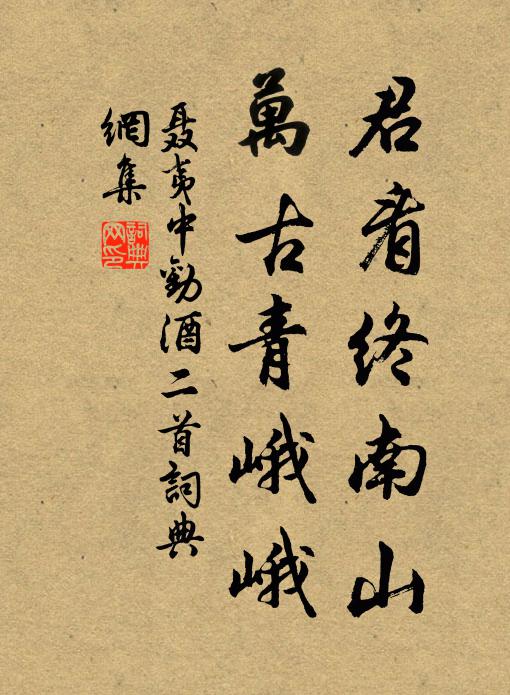 君看終南山
萬古青峨峨
聂夷中勸酒二首詞典
網集
詞典
网印